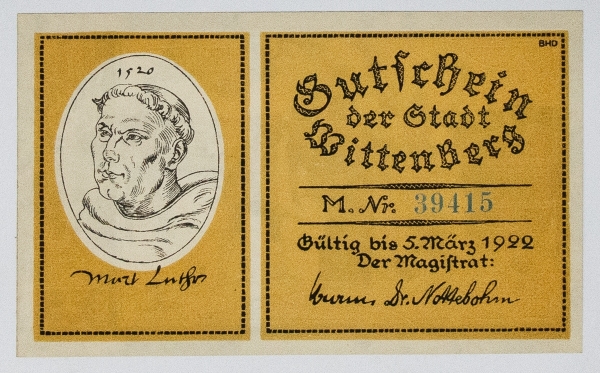 1520
Mart Luther
BHD
Gutschein
der Stadt
Wittenberg
M. Nr. 39415
Gültig bis 5. März 1922
Der Magistrat:
Dr. Nottebohm